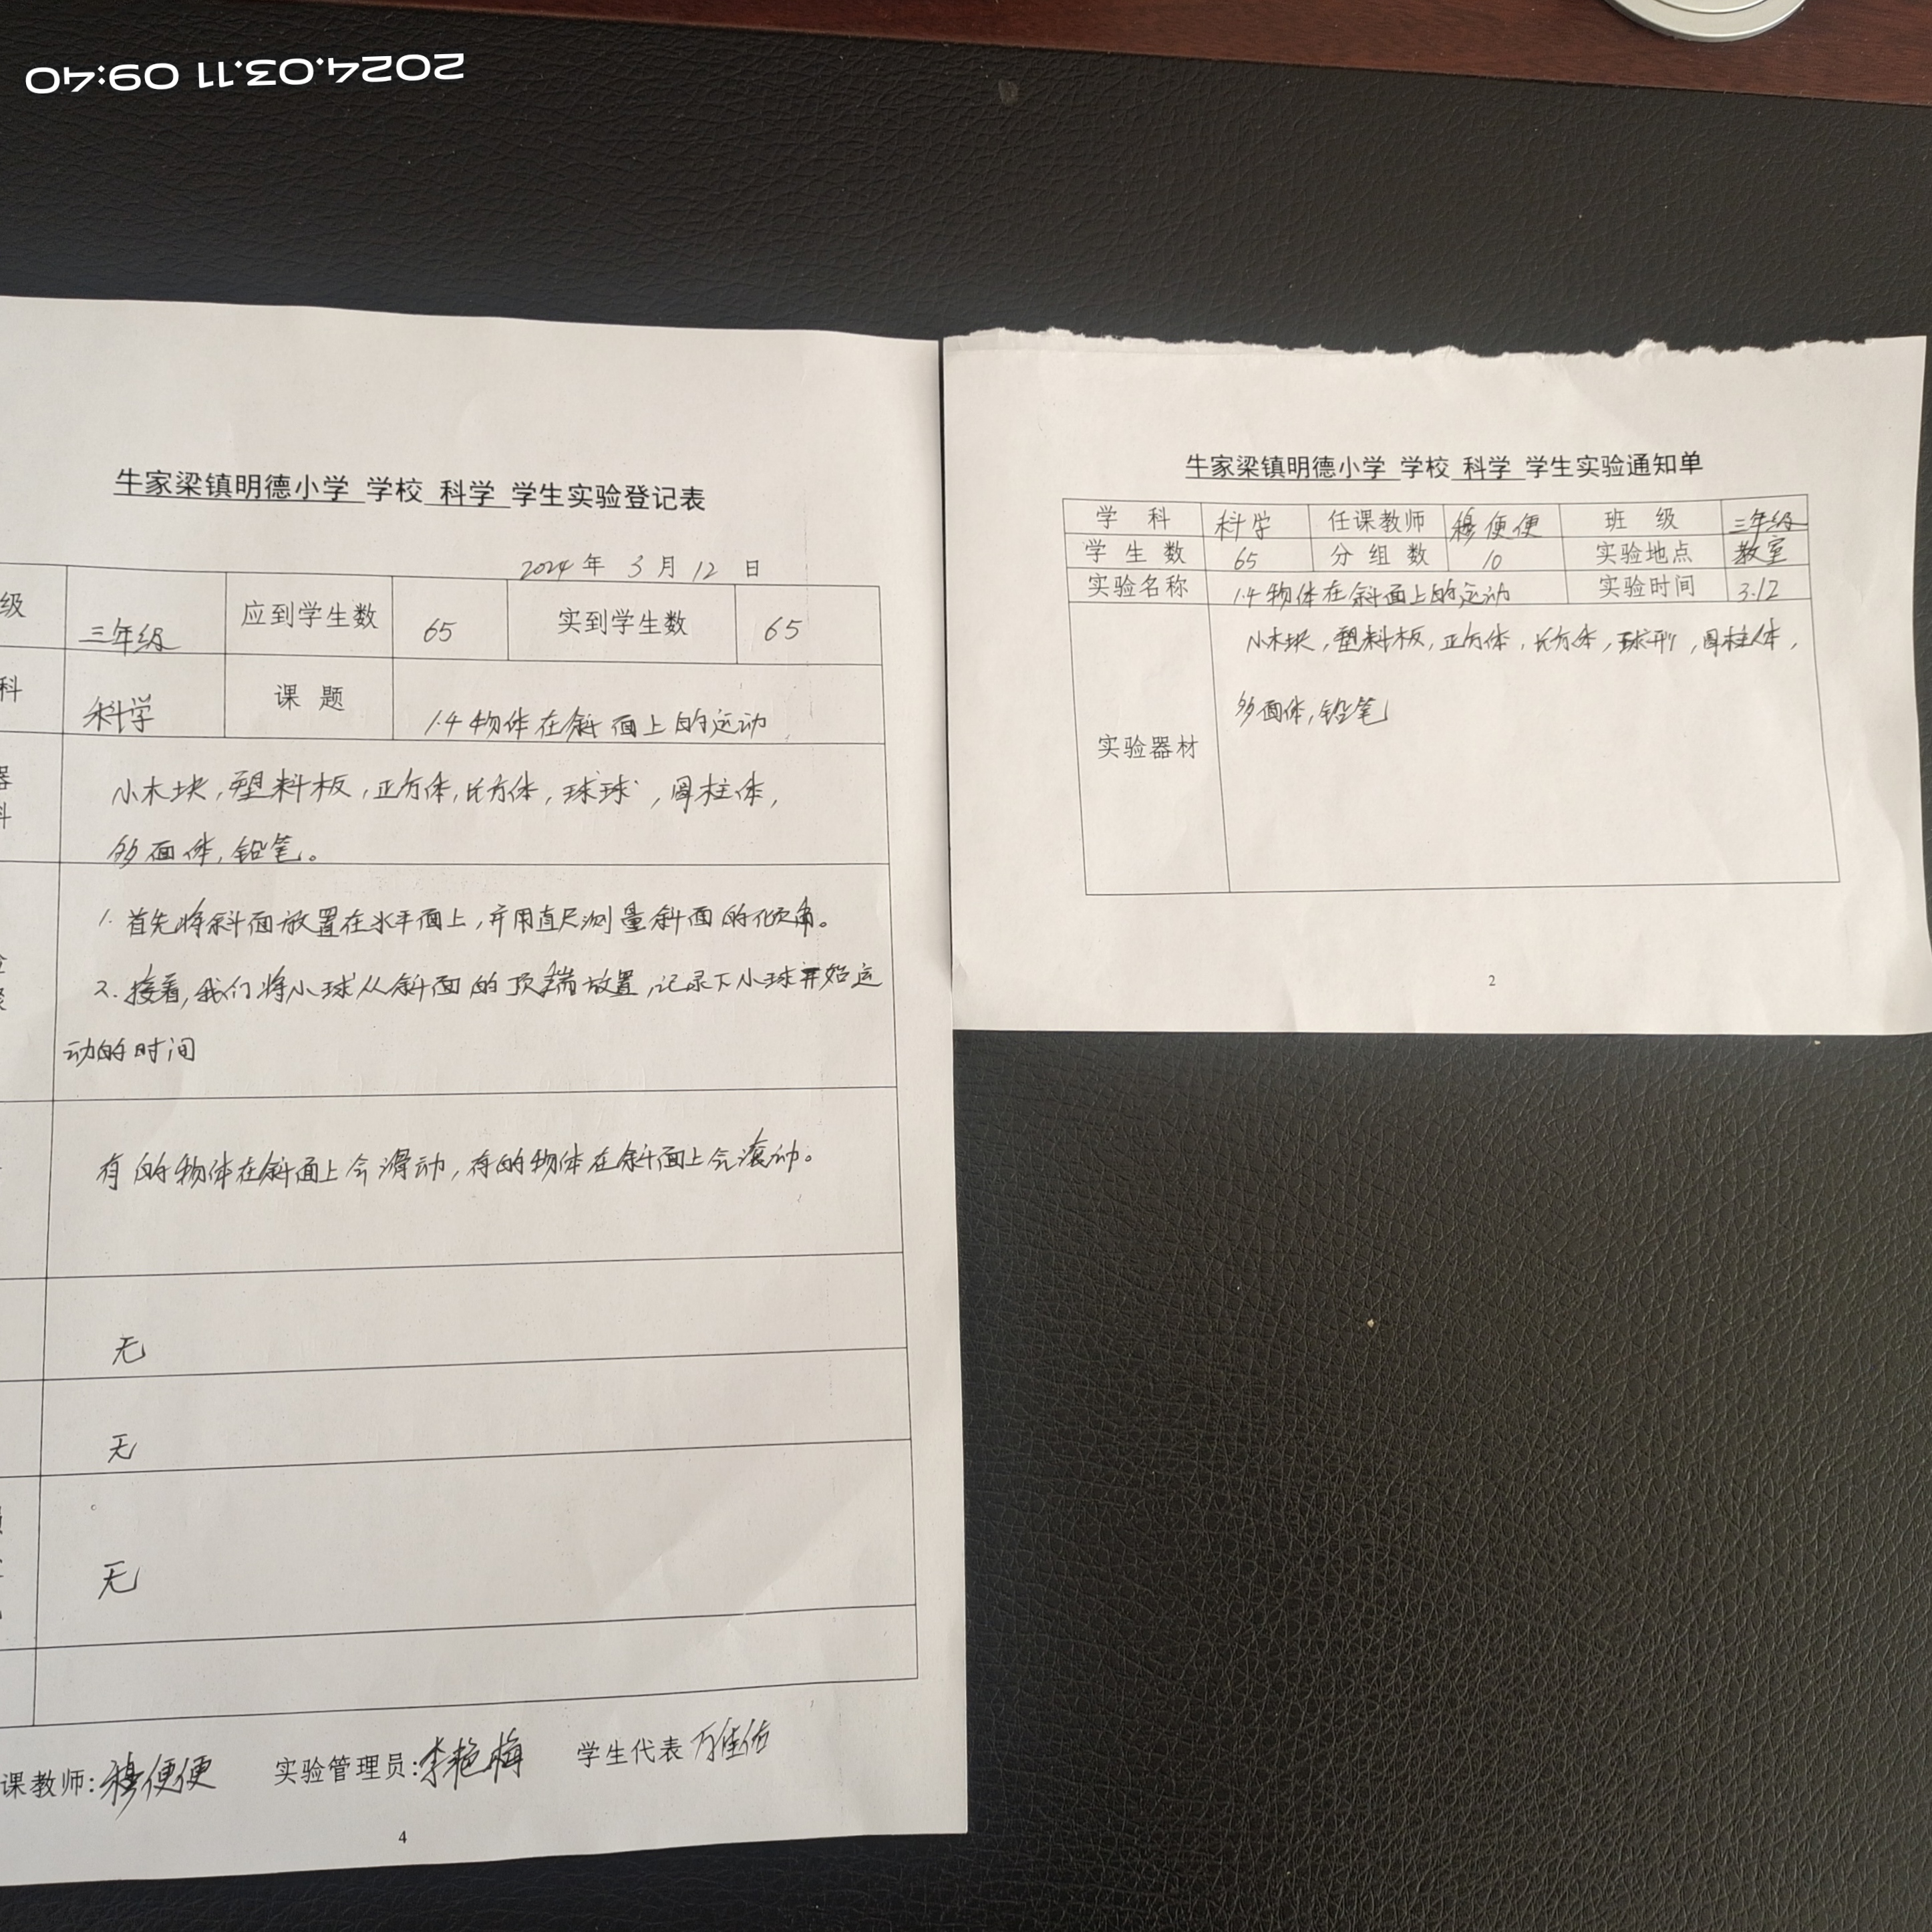 2024.03.11 09:40
牛家梁镇明德小学 学校 科学 学生实验登记表
2024 年 3 月 12 日
级 三年级 应到学生数 65 实到学生数 65
科 科学 课 题 1.4 物体在斜面上的运动
小木块,塑料板,正方体,长方体,球球,圆柱体,
多面体,铅笔。
1. 首先将斜面放置在水平面上,并用直尺测量斜面的倾角。
2. 接着,我们将小球从斜面的顶端放置,记录下小球开始运
动的时间
有的物体在斜面上会滑动,有的物体在斜面上会滚动。
无
无
无
课教师:穆便便 实验管理员:李艳梅 学生代表 万佳佑
4
牛家梁镇明德小学 学校 科学 学生实验通知单
学 科 科学 任课教师 穆便便 班 级 三年级
学 生 数 65 分 组 数 10 实验地点 教室
实验名称 1.4 物体在斜面上的运动 实验时间 3.12
小木块,塑料板,正方体,长方体,球形,圆柱体,
多面体,铅笔
实验器材
2